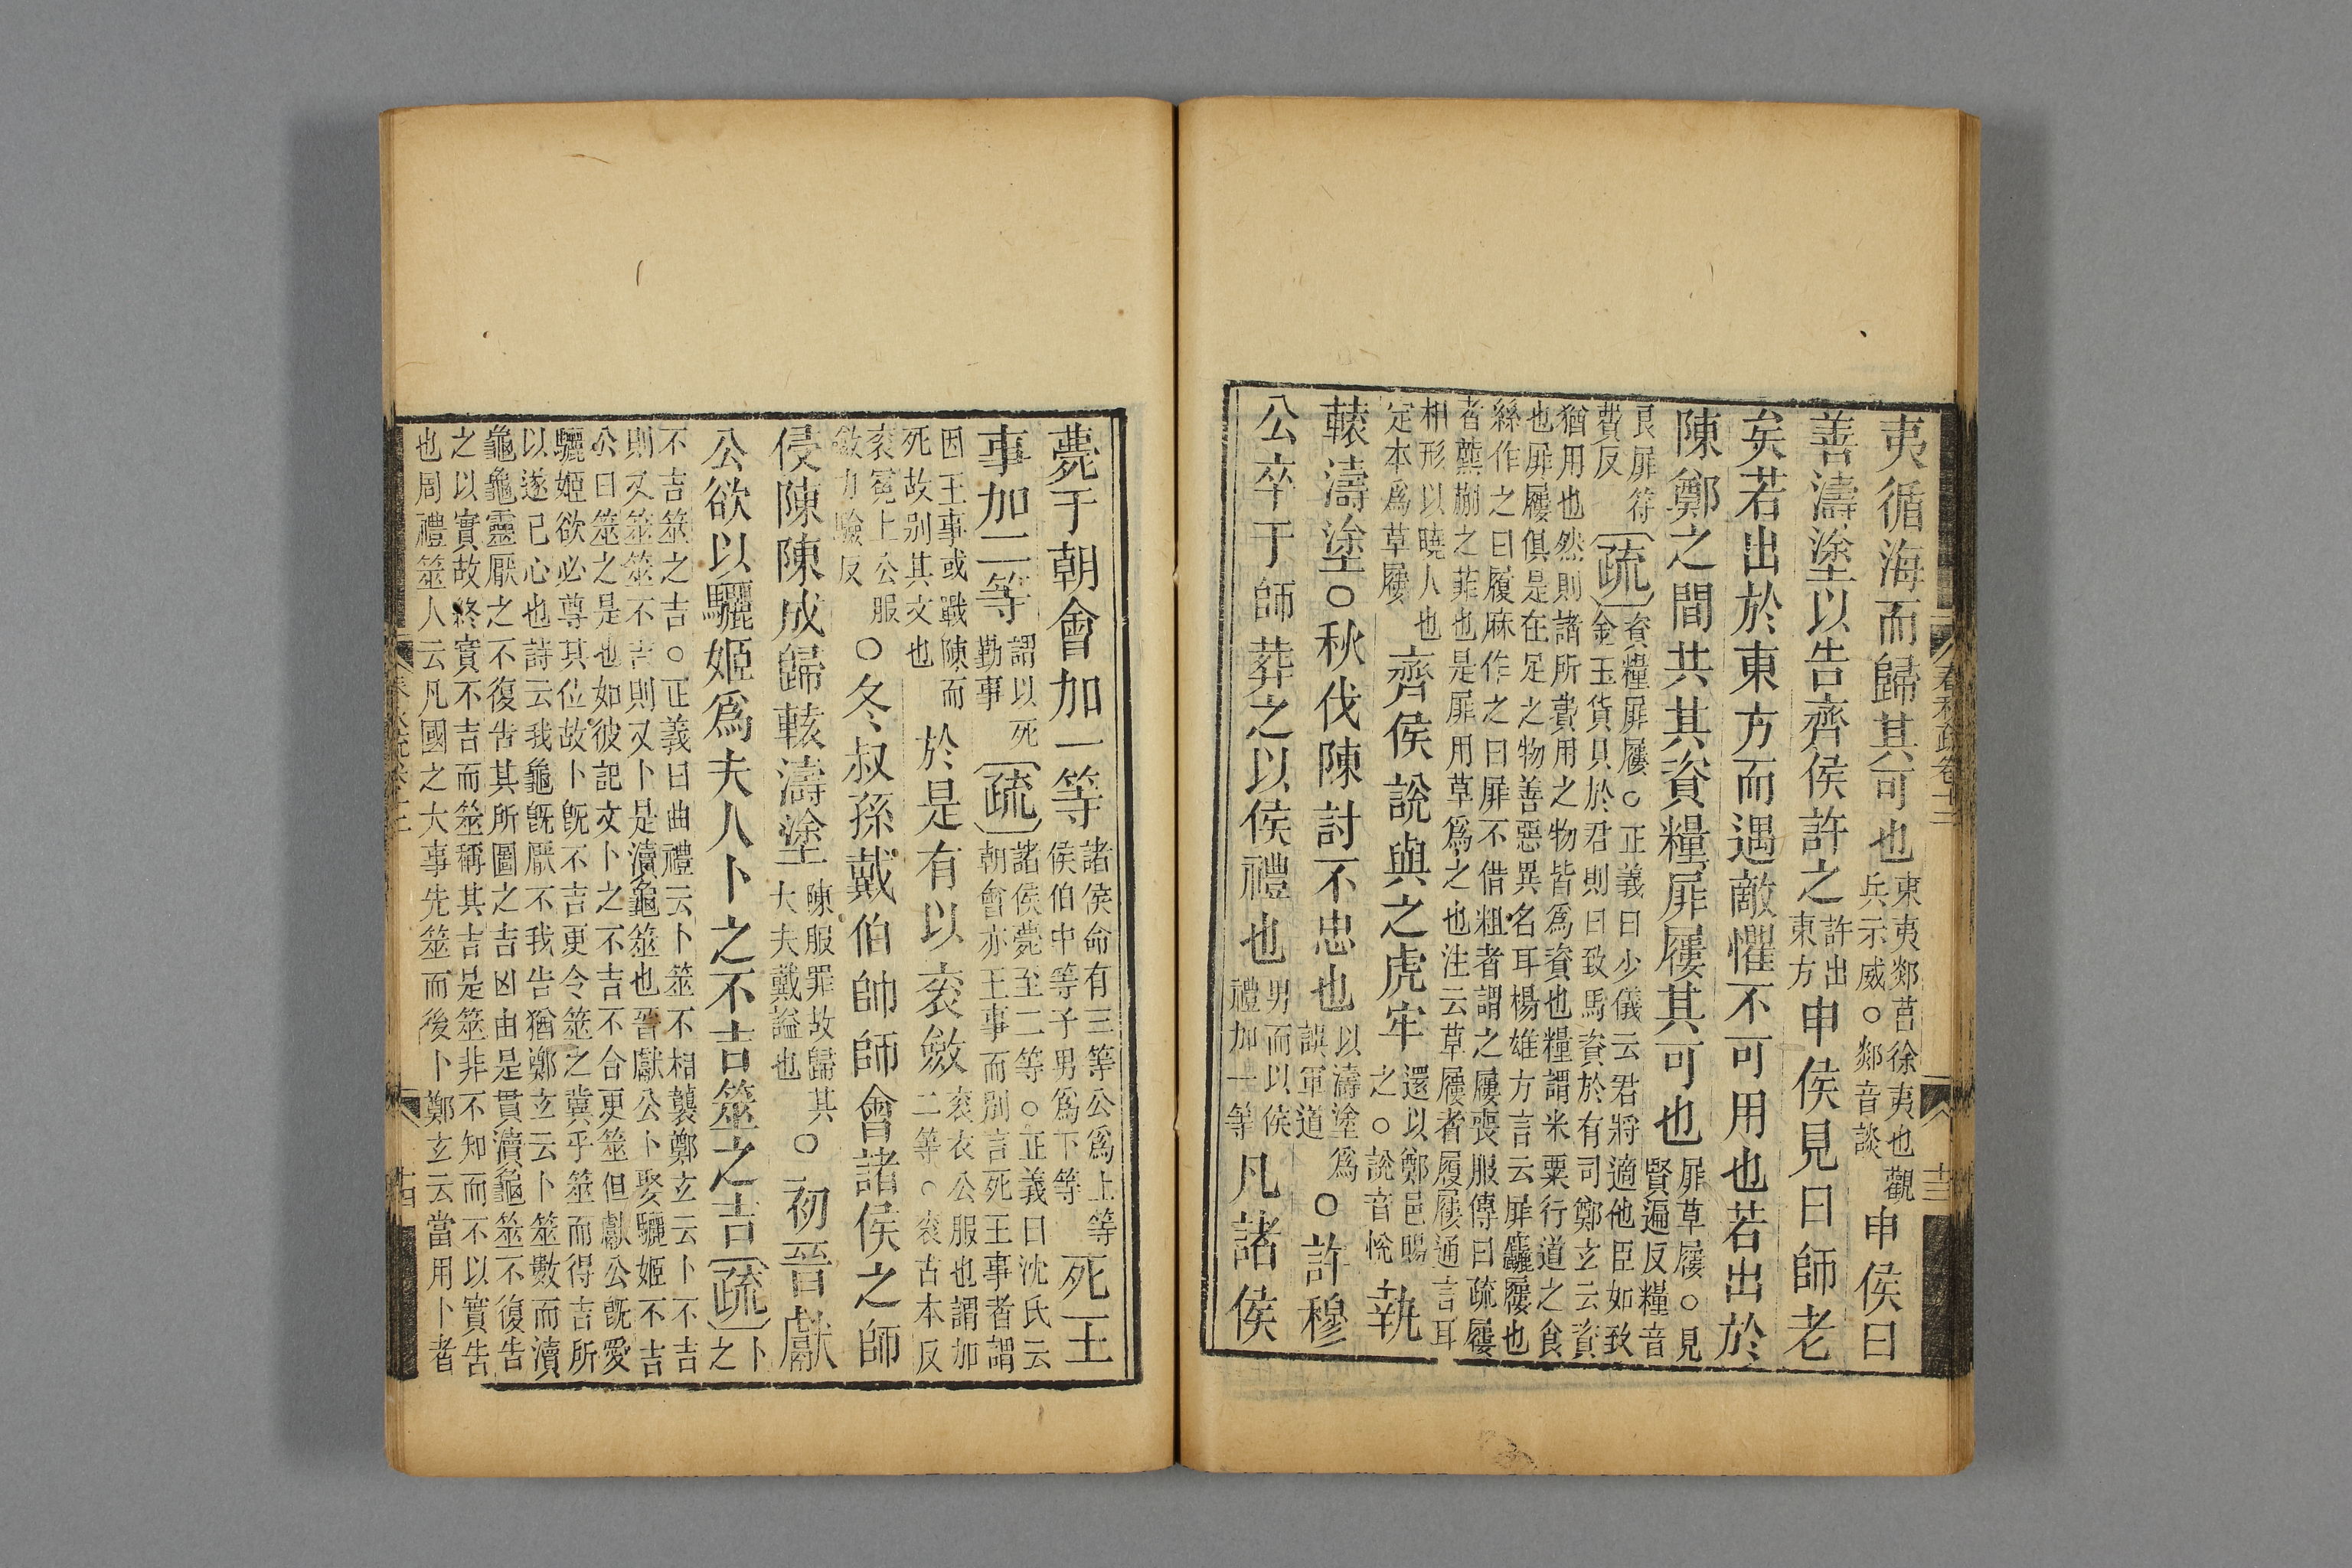 夷循海而歸其可也東夷郯莒徐夷也觀兵示威○郯音談申侯曰
善濤塗以告齊侯許之許出東方申侯見曰師老
矣若出於東方而遇敵懼不可用也若出於
陳鄭之間共其資糧屝屨其可也屝草屨○見賢遍反糧音
良屝符費反疏資糧屝屨○正義曰少儀云君將適他臣如致金玉貨貝於君則曰致馬資於有司鄭玄云資
猶用也然則諸所費用之物皆爲資也糧謂米粟行道之食也屝屨俱是在足之物善惡異名耳楊雄方言云屝麤屨也
絲作之曰履麻作之曰屝不借粗者謂之屨喪服傳曰疏屨者藨蒯之菲也是屝用草爲之也注云草屨者履屨通言耳
相形以曉人也定本爲草屨齊侯說與之虎牢還以鄭邑賜之○說音悅執
轅濤塗○秋伐陳討不忠也以濤塗爲誤軍道○許穆
公卒于師葬之以侯禮也男而以侯禮加一等凡諸侯
春秋疏卷十二
十三
薨于朝會加一等諸侯命有三等公爲上等侯伯中等子男爲下等死王
事加二等謂以死勤事疏諸侯薨至二等○正義曰沈氏云朝會亦王事而別言死王事者謂
因王事或戰陳而死故别其文也於是有以袞斂袞衣公服也謂加二等○袞古本反
袞冕上公服斂力驗反○冬叔孫戴伯帥師會諸侯之師
侵陳陳成歸轅濤塗陳服罪故歸其大夫戴謚也○初晉獻
公欲以驪姬爲夫人卜之不吉筮之吉疏卜之
不吉筮之吉○正義曰曲禮云卜筮不相襲鄭玄云卜不吉則又筮筮不吉則又卜是瀆龜筮也晉獻公卜娶驪姬不吉
公曰筮之是也如彼記文卜之不吉不合更筮但獻公既愛驪姬欲必尊其位故卜既不吉更令筮之冀乎筮而得吉所
以遂已心也詩云我龜既厭不我告猶鄭玄云卜筮數而瀆龜龜靈厭之不復告其所圖之吉凶由是貫瀆龜筮不復告
之以實故終實不吉而筮稱其吉是筮非不知而不以實告也周禮筮人云凡國之大事先筮而後卜鄭玄云當用卜者
十四